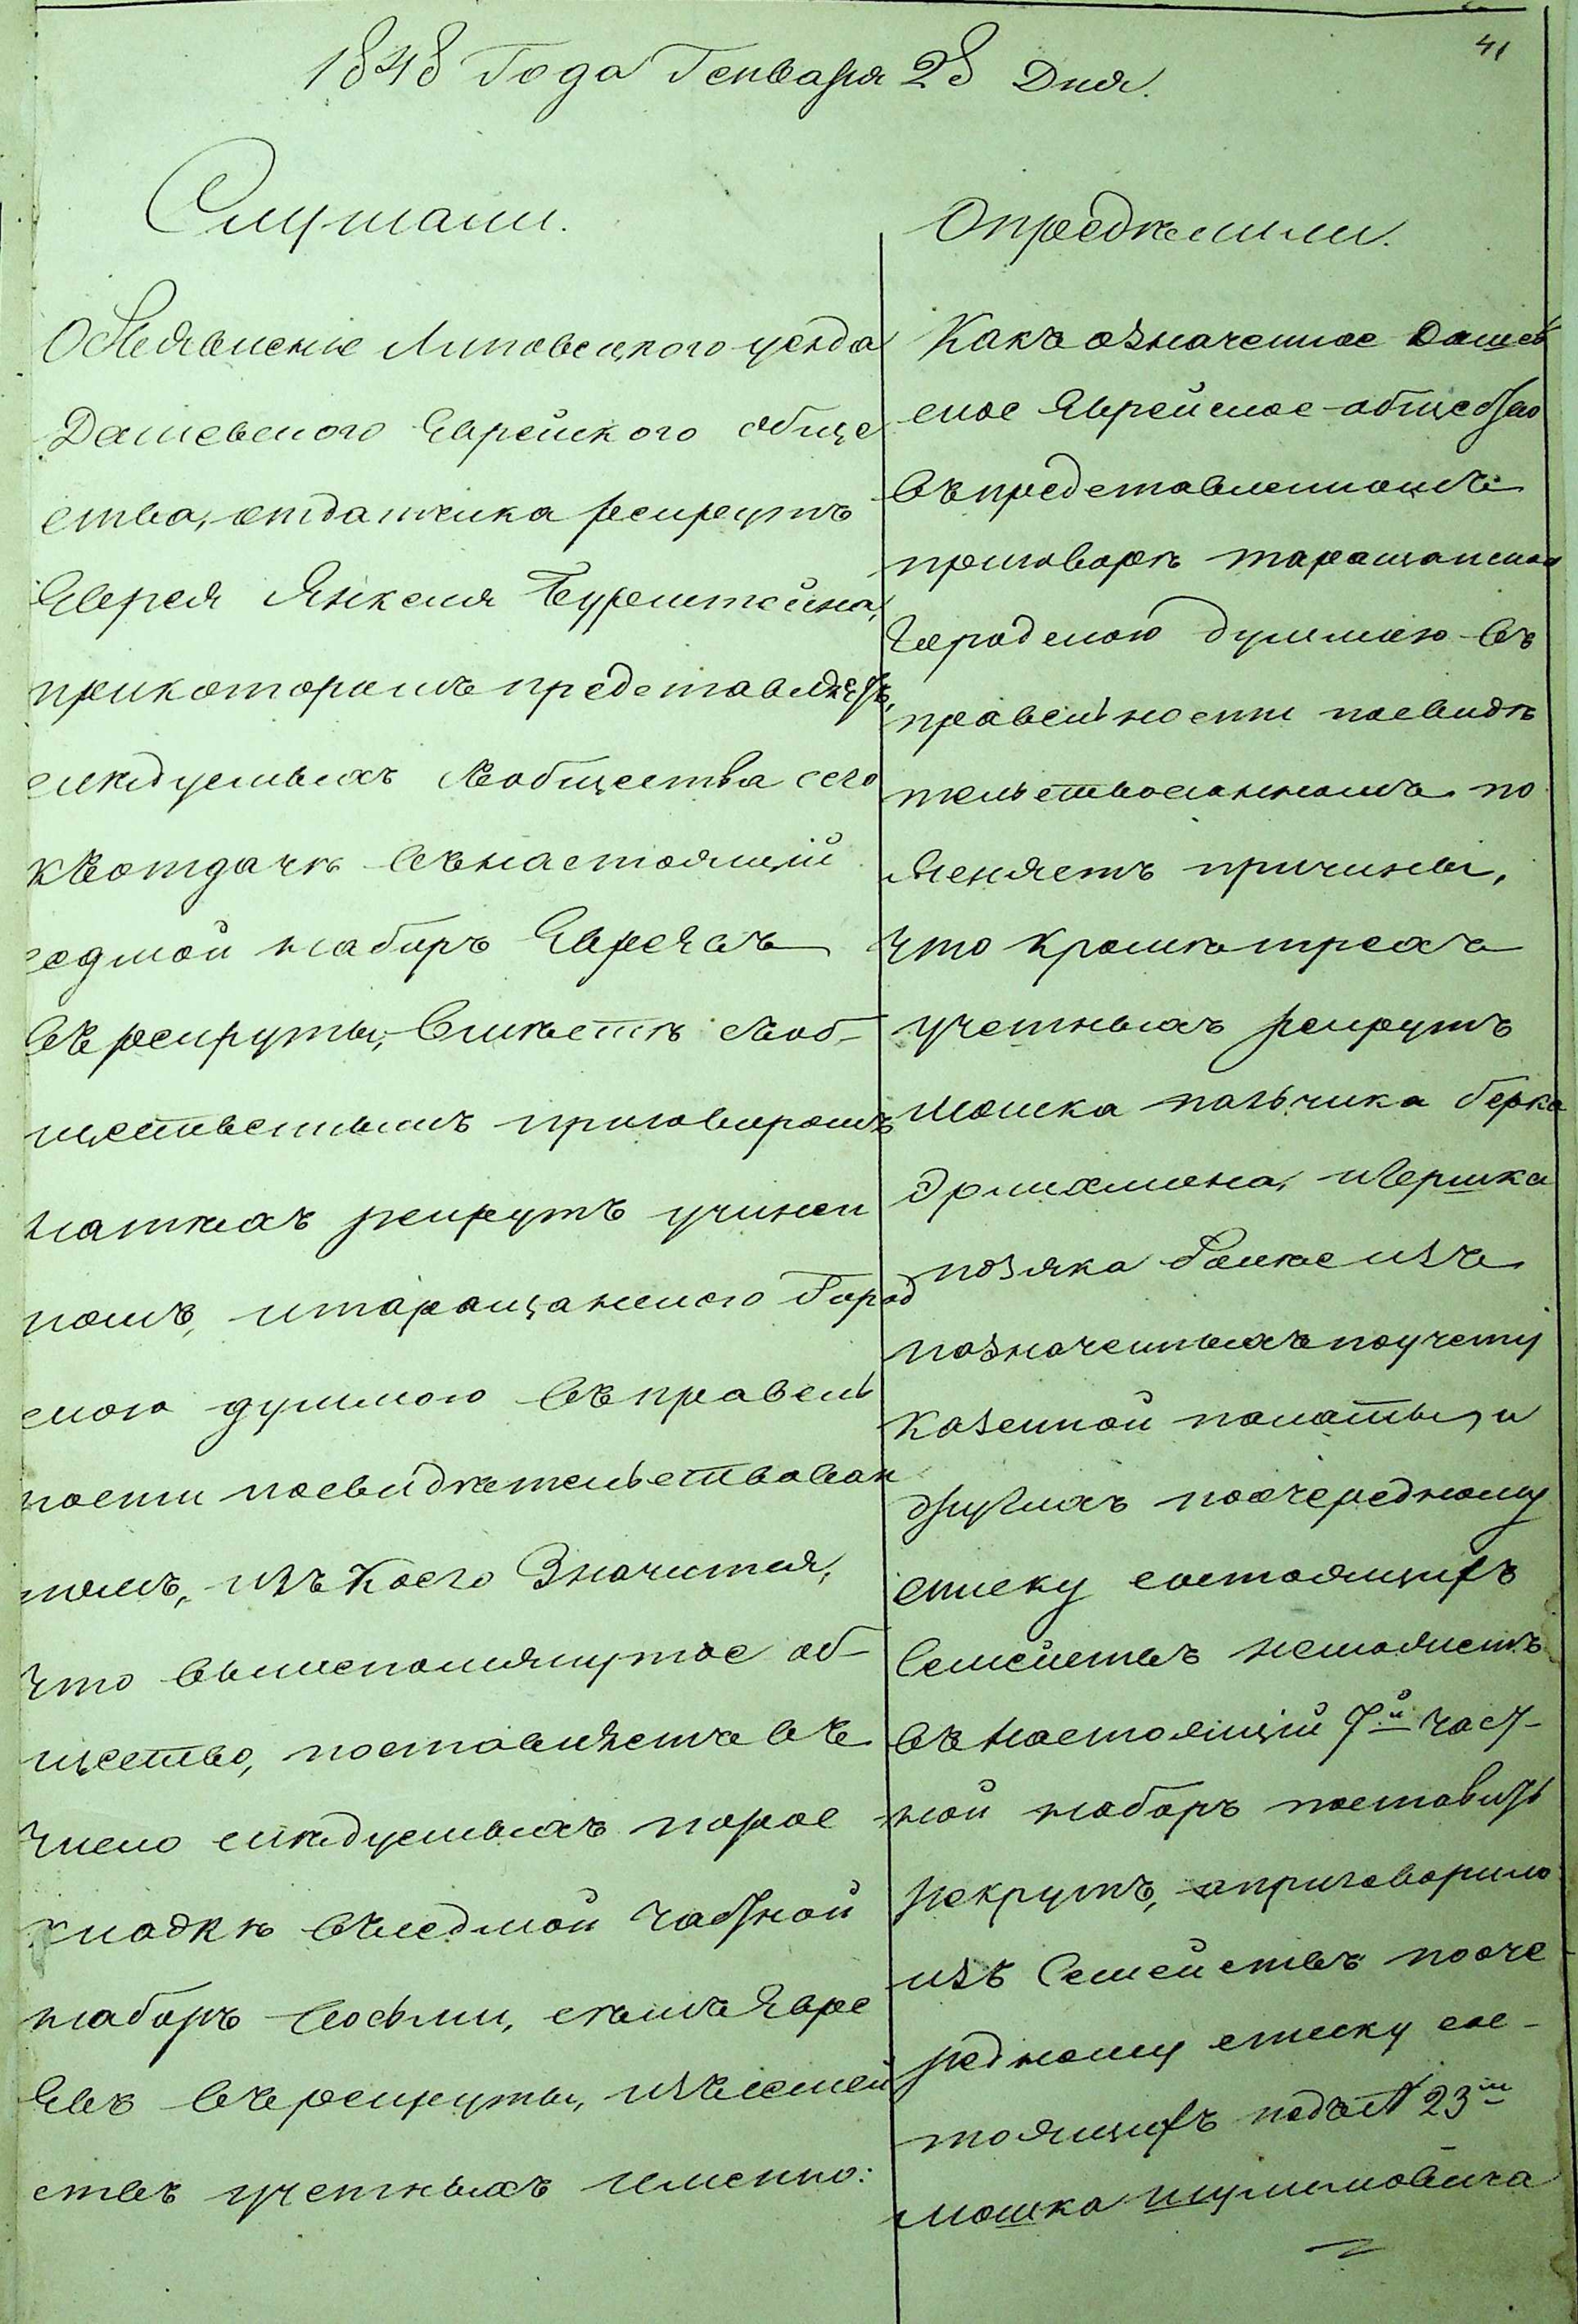 41
1848 Года Генваря 28 Дня.
Слушали.
Объявленіе Липовецкого уезда
Дашевского Еврейского обще
ства, отдатчика рекрутъ
Еврея Янкеля Буренштейна,
прикоторомъ представляетъ,
следуемыхъ съобщества сего
къотдачѣ вънастоящій
седмой наборъ Евреевъ
въ рекруты, вместѣ съоб-
щественнымъ приговоромъ
натѣхъ рекрутъ учинен
нымъ, итаращанского Город
ского думмою въправель
ности посвидѣтельствован
нымъ, изъ коего Значится,
что вышепомянутое об-
щество, поставляетъ въ
число следуемыхъ порос
кладкѣ въседмой частной
наборъ восьми, съимъ Евре
евъ въ рекруты, изъсемей
ствъ учетныхъ именно:
Опредѣлили.
Какъ означенное Дашев
ское Еврейское общество
въпредставленномъ
приговорѣ таращанскою
Городскою думмою въ
правельности посвидѣ
тельствованномъ по
ясняетъ причины,
что кромѣ трехъ
учетныхъ рекрутъ
Мошка пальчика берка
Эрлихмана, иГершка
позяка Болѣе изъ
назначенныхъ поучету
Казенной палаты, и
другихъ поочередному
списку состоящихъ
Семействъ неможетъ
въ настоящій 7й част-
ной наборъ поставить
рекрутъ, априговорило
изъ Семействъ пооче
редному списку сос-
тоящихъ подъ № 23м
мошка шулимовича